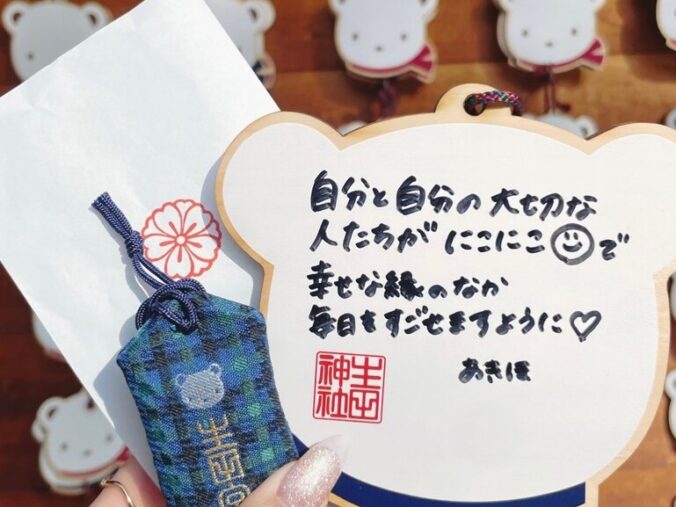 自分と自分の大切な
人たちが にこにこ☺で
幸せな縁のなか
毎日をすごせますように♡
あきほ
生田神社
生田